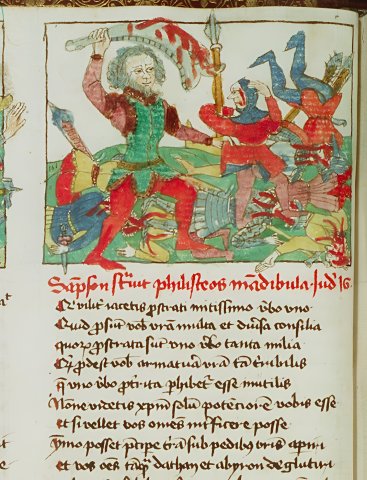 Sāpson st̄uit philisteos mādibula · Jud 16
Cur vilit' iacetis p̄strati mitissimo v̄bo uno
Quid p̄sūt vob' vr̄a multa et diūsa consilia
Quor p̄strata sūt uno v̄bo tanta milia
p̄dest vob' armatura vr̄a tā t'ribilis
q̄ uno v̄bo p̄trita phibet' esse inutilis
Nōne videtis xp̄m solū potentiorē vobis esse
et si vellet vos om̄es int'ficere posse
ymo posset p̄cipe t'rā sub pedibus vr̄is apiri
et vos oēs tāq̄ dathan et abyron deglutiri